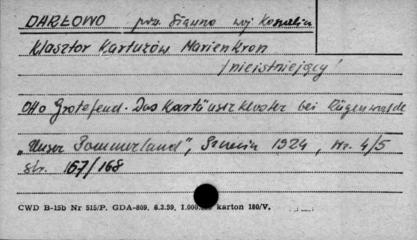 DARŁOWO pow. Sławno woj Koszalin
Klasztor Kartuzów Marienkron
/nieistniejący/
Otto Grotefend. Das Kartäuserkloster bei Rügenwalde
„Unser Pommerland", Szczecin 1924, nr. 4/5
str. 167/168
CWD B-15b Nr 515/P. GDA-809. 6.3.59. 1.000. karton 180/V.